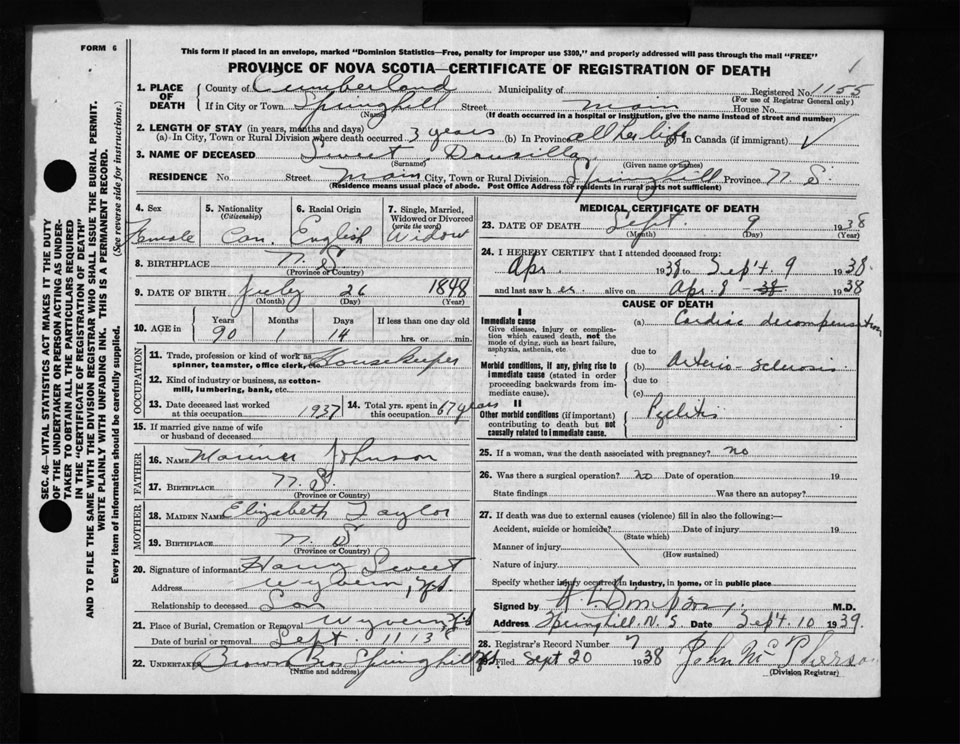 FORM 6
This form if placed in an envelope, marked "Dominion Statistics—Free, penalty for improper use $300," and properly addressed will pass through the mail "FREE"
PROVINCE OF NOVA SCOTIA—CERTIFICATE OF REGISTRATION OF DEATH
1
1. PLACE OF DEATH County of Cumberland Municipality of Registered No. 1155
(For use of Registrar General only)
If in City or Town Springhill Street Main House No.
(Name) (If death occurred in a hospital or institution, give the name instead of street and number)
2. LENGTH OF STAY (in years, months and days)
(a) In City, Town or Rural Division where death occurred 3 years (b) In Province all her life (c) In Canada (if immigrant)
3. NAME OF DECEASED Sweet, Drusilla
(Surname) (Given name or names)
RESIDENCE No. Street Main City, Town or Rural Division Springhill Province N. S.
(Residence means usual place of abode. Post Office Address for residents in rural parts not sufficient)
4. Sex Female
5. Nationality (Citizenship) Can.
6. Racial Origin English
7. Single, Married, Widowed or Divorced (write the word) Widow
8. BIRTHPLACE N. S.
(Province or Country)
9. DATE OF BIRTH July 26 1848
(Month) (Day) (Year)
10. AGE in Years 90 Months 1 Days 14 If less than one day old hrs. or min.
OCCUPATION
11. Trade, profession or kind of work as spinner, teamster, office clerk, etc. Housekeeper
12. Kind of industry or business, as cotton-mill, lumbering, bank, etc.
13. Date deceased last worked at this occupation 1937
14. Total yrs. spent in this occupation 67 years
15. If married give name of wife or husband of deceased
FATHER
16. NAME Mariner Johnson
17. BIRTHPLACE N. S.
(Province or Country)
MOTHER
18. MAIDEN NAME Elizabeth Taylor
19. BIRTHPLACE N. S.
(Province or Country)
20. Signature of informant Harry Sweet
Address Wyvern, N.S.
Relationship to deceased Son
21. Place of Burial, Cremation or Removal Wyvern N.S.
Date of burial or removal Sept. 11 1938
22. UNDERTAKER Brown Bros Springhill N.S.
(Name and address)
MEDICAL CERTIFICATE OF DEATH
23. DATE OF DEATH Sept. 9 1938
(Month) (Day) (Year)
24. I HEREBY CERTIFY that I attended deceased from:
Apr. 1938 to Sep't. 9 1938.
and last saw her alive on Apr. 8 38 1938
CAUSE OF DEATH
I
Immediate cause
Give disease, injury or complication which caused death, not the mode of dying, such as heart failure, asphyxia, asthenia, etc.
(a) Cardiac decompensation
due to
Morbid conditions, if any, giving rise to immediate cause (stated in order proceeding backwards from immediate cause).
(b) Arterio-sclerosis
due to
(c)
II
Other morbid conditions (if important) contributing to death but not causally related to immediate cause.
Pyelitis
25. If a woman, was the death associated with pregnancy? no
26. Was there a surgical operation? no Date of operation 19
State findings Was there an autopsy?
27. If death was due to external causes (violence) fill in also the following:—
Accident, suicide or homicide? Date of injury 19
(State which)
Manner of injury
(How sustained)
Nature of injury
Specify whether injury occurred in industry, in home, or in public place
Signed by M.D.
Address Springhill N. S Date Sep't. 10 1939.
28. Registrar's Record Number 7
Filed Sept 20 1938 John McPherson
(Division Registrar)
SEC. 46—VITAL STATISTICS ACT MAKES IT THE DUTY
OF THE UNDERTAKER OR PERSON ACTING AS UNDER-
TAKER TO OBTAIN ALL THE PARTICULARS REQUIRED
IN THE "CERTIFICATE OF REGISTRATION OF DEATH"
AND TO FILE THE SAME WITH THE DIVISION REGISTRAR WHO SHALL ISSUE THE BURIAL PERMIT.
WRITE PLAINLY WITH UNFADING INK. THIS IS A PERMANENT RECORD.
Every item of information should be carefully supplied. (See reverse side for instructions.)